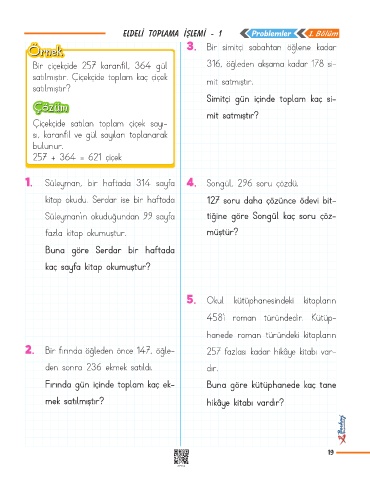 ELDELİ TOPLAMA İŞLEMİ - 1
Problemler
1. Bölüm
Örnek
Bir çiçekçide 257 karanfil, 364 gül
satılmıştır. Çiçekçide toplam kaç çiçek
satılmıştır?
Çözüm
Çiçekçide satılan toplam çiçek sayı-
sı, karanfil ve gül sayıları toplanarak
bulunur.
257 + 364 = 621 çiçek
1. Süleyman, bir haftada 314 sayfa
kitap okudu. Serdar ise bir haftada
Süleyman'ın okuduğundan 99 sayfa
fazla kitap okumuştur.
Buna göre Serdar bir haftada
kaç sayfa kitap okumuştur?
2. Bir fırında öğleden önce 147, öğle-
den sonra 236 ekmek satıldı.
Fırında gün içinde toplam kaç ek-
mek satılmıştır?
3. Bir simitçi sabahtan öğlene kadar
316, öğleden akşama kadar 178 si-
mit satmıştır.
Simitçi gün içinde toplam kaç si-
mit satmıştır?
4. Songül, 296 soru çözdü.
127 soru daha çözünce ödevi bit-
tiğine göre Songül kaç soru çöz-
müştür?
5. Okul kütüphanesindeki kitapların
458'i roman türündedir. Kütüp-
hanede roman türündeki kitapların
257 fazlası kadar hikâye kitabı var-
dır.
Buna göre kütüphanede kaç tane
hikâye kitabı vardır?
19